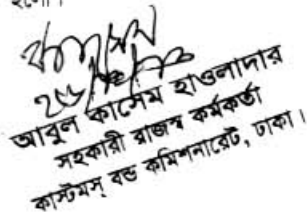 হলো।
আবুল কাসেম হাওলাদার
সহকারী রাজস্ব কর্মকর্তা
কাস্টমস্ বন্ড কমিশনারেট, ঢাকা।